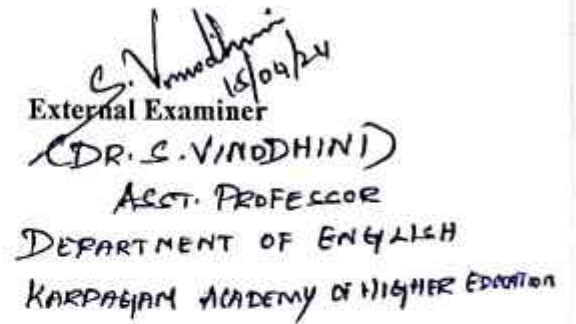 S. Vinodhini
15/04/24
External Examiner
(DR. S. VINODHINI)
ASST. PROFESSOR
DEPARTMENT OF ENGLISH
KARPAGAM ACADEMY OF HIGHER EDUCATION